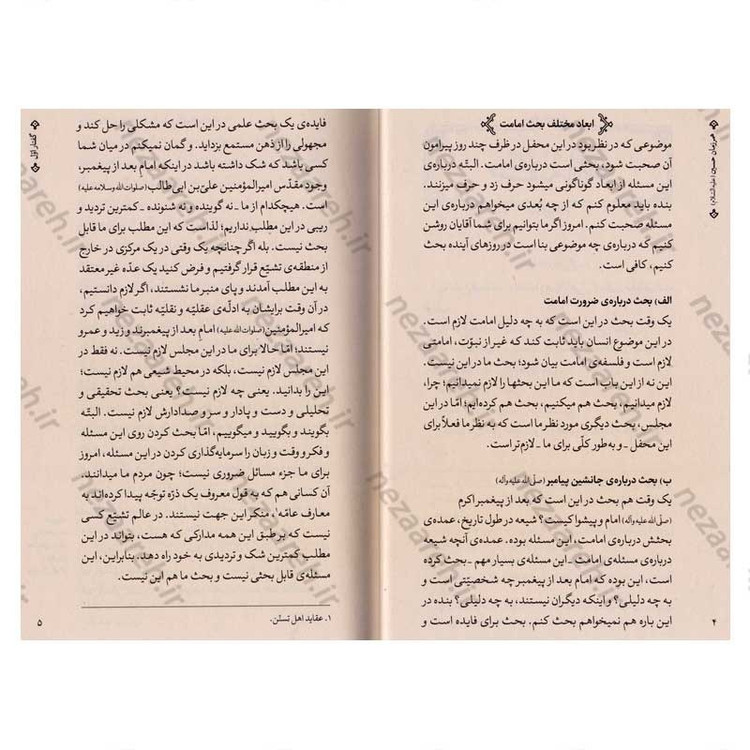 ابعاد مختلف بحث امامت
موضوعی که در نظر بود در این محفل در ظرف چند روز پیرامون
آن صحبت شود، بحثی است درباره‌ی امامت. البتّه درباره‌ی
این مسئله از ابعاد گوناگونی میشود حرف زد و حرف میزنند.
بنده باید معلوم کنم که از چه بُعدی میخواهم درباره‌ی این
مسئله صحبت کنم. امروز اگر ما بتوانیم برای شما آقایان روشن
کنیم که درباره‌ی چه موضوعی بنا است در روزهای آینده بحث
کنیم، کافی است.
الف) بحث درباره‌ی ضرورت امامت
یک وقت بحث در این است که به چه دلیل امامت لازم است.
در این موضوع انسان باید ثابت کند که غیر از نبوّت، امامتی
لازم است و فلسفه‌ی امامت بیان شود؛ بحث ما در این نیست.
این نه از این باب است که ما این بحثها را لازم نمیدانیم؛ چرا،
لازم میدانیم، بحث هم میکنیم، بحث هم کرده‌ایم؛ امّا در این
مجلس، بحث دیگری مورد نظر ما است که به نظر ما فعلاً برای
این محفل ـ و به‌طور کلّی برای ما ـ لازم‌تر است.
ب) بحث درباره‌ی جانشین پیامبر (صلّی الله علیه وآله)
یک وقت هم بحث در این است که بعد از پیغمبر اکرم
(صلّی الله علیه وآله) امام و پیشوا کیست؟ شیعه در طول تاریخ، عمده‌ی
بحثش درباره‌ی امامت، این مسئله بوده. عمده‌ی آنچه شیعه
درباره‌ی مسئله‌ی امامت ـ این مسئله‌ی بسیار مهم ـ بحث کرده
است، این بوده که امام بعد از پیغمبر چه شخصیّتی است و
به چه دلیلی؟ و اینکه دیگران نیستند، به چه دلیلی؟ بنده در
این باره هم نمیخواهم بحث کنم. بحث برای فایده است و
۴
فایده‌ی یک بحث علمی در این است که مشکلی را حل کند و
مجهولی را از ذهن مستمع بزداید. و گمان نمیکنم در میان شما
کسی باشد که شک داشته باشد در اینکه امام بعد از پیغمبر،
وجود مقدّس امیرالمؤمنین علی‌بن ابی طالب (صلوات الله وسلامه علیه)
است. هیچکدام از ما ـ نه گوینده و نه شنونده ـ کمترین تردید و
ریبی در این مطلب نداریم؛ لذا است که این مطلب برای ما قابل
بحث نیست. بله اگر چنانچه یک وقتی در یک مرکزی در خارج
از منطقه‌ی تشیّع قرار گرفتیم و فرض کنید یک عدّه غیر معتقد
به این مطلب آمدند و پای منبر ما نشستند، اگر لازم دانستیم،
در آن وقت برایشان به ادلّه‌ی عقلیّه و نقلیّه ثابت خواهیم کرد
که امیرالمؤمنین (صلوات الله علیه) امام بعد از پیغمبرند و زید و عمرو
نیستند؛ امّا حالا برای ما در این مجلس لازم نیست. نه فقط در
این مجلس لازم نیست، بلکه در محیط شیعی هم لازم نیست؛
این را بدانید. یعنی چه لازم نیست؟ یعنی بحث تحقیقی و
تحلیلی و دست و پادار و سر و صدادارش لازم نیست. البتّه
بگویند و بگویید و میگوییم، امّا بحث کردن روی این مسئله
و فکر و وقت و زبان را سرمایه‌گذاری کردن در این مسئله، امروز
برای ما جزء مسائل ضروری نیست؛ چون مردم ما میدانند.
آن کسانی هم که به قول معروف یک ذرّه توجّه پیدا کرده‌اند به
معارف عامّه۱، منکر این جهت نیستند. در عالم تشیّع کسی
نیست که بر طبق این همه مدارکی که هست، بتواند در این
مطلب کمترین شک و تردیدی به خود راه دهد. بنابراین، این
مسئله‌ی قابل بحثی نیست و بحث ما هم این نیست.
۱. عقاید اهل تسنّن.
۵
گفتار اوّل
nezaareh.ir